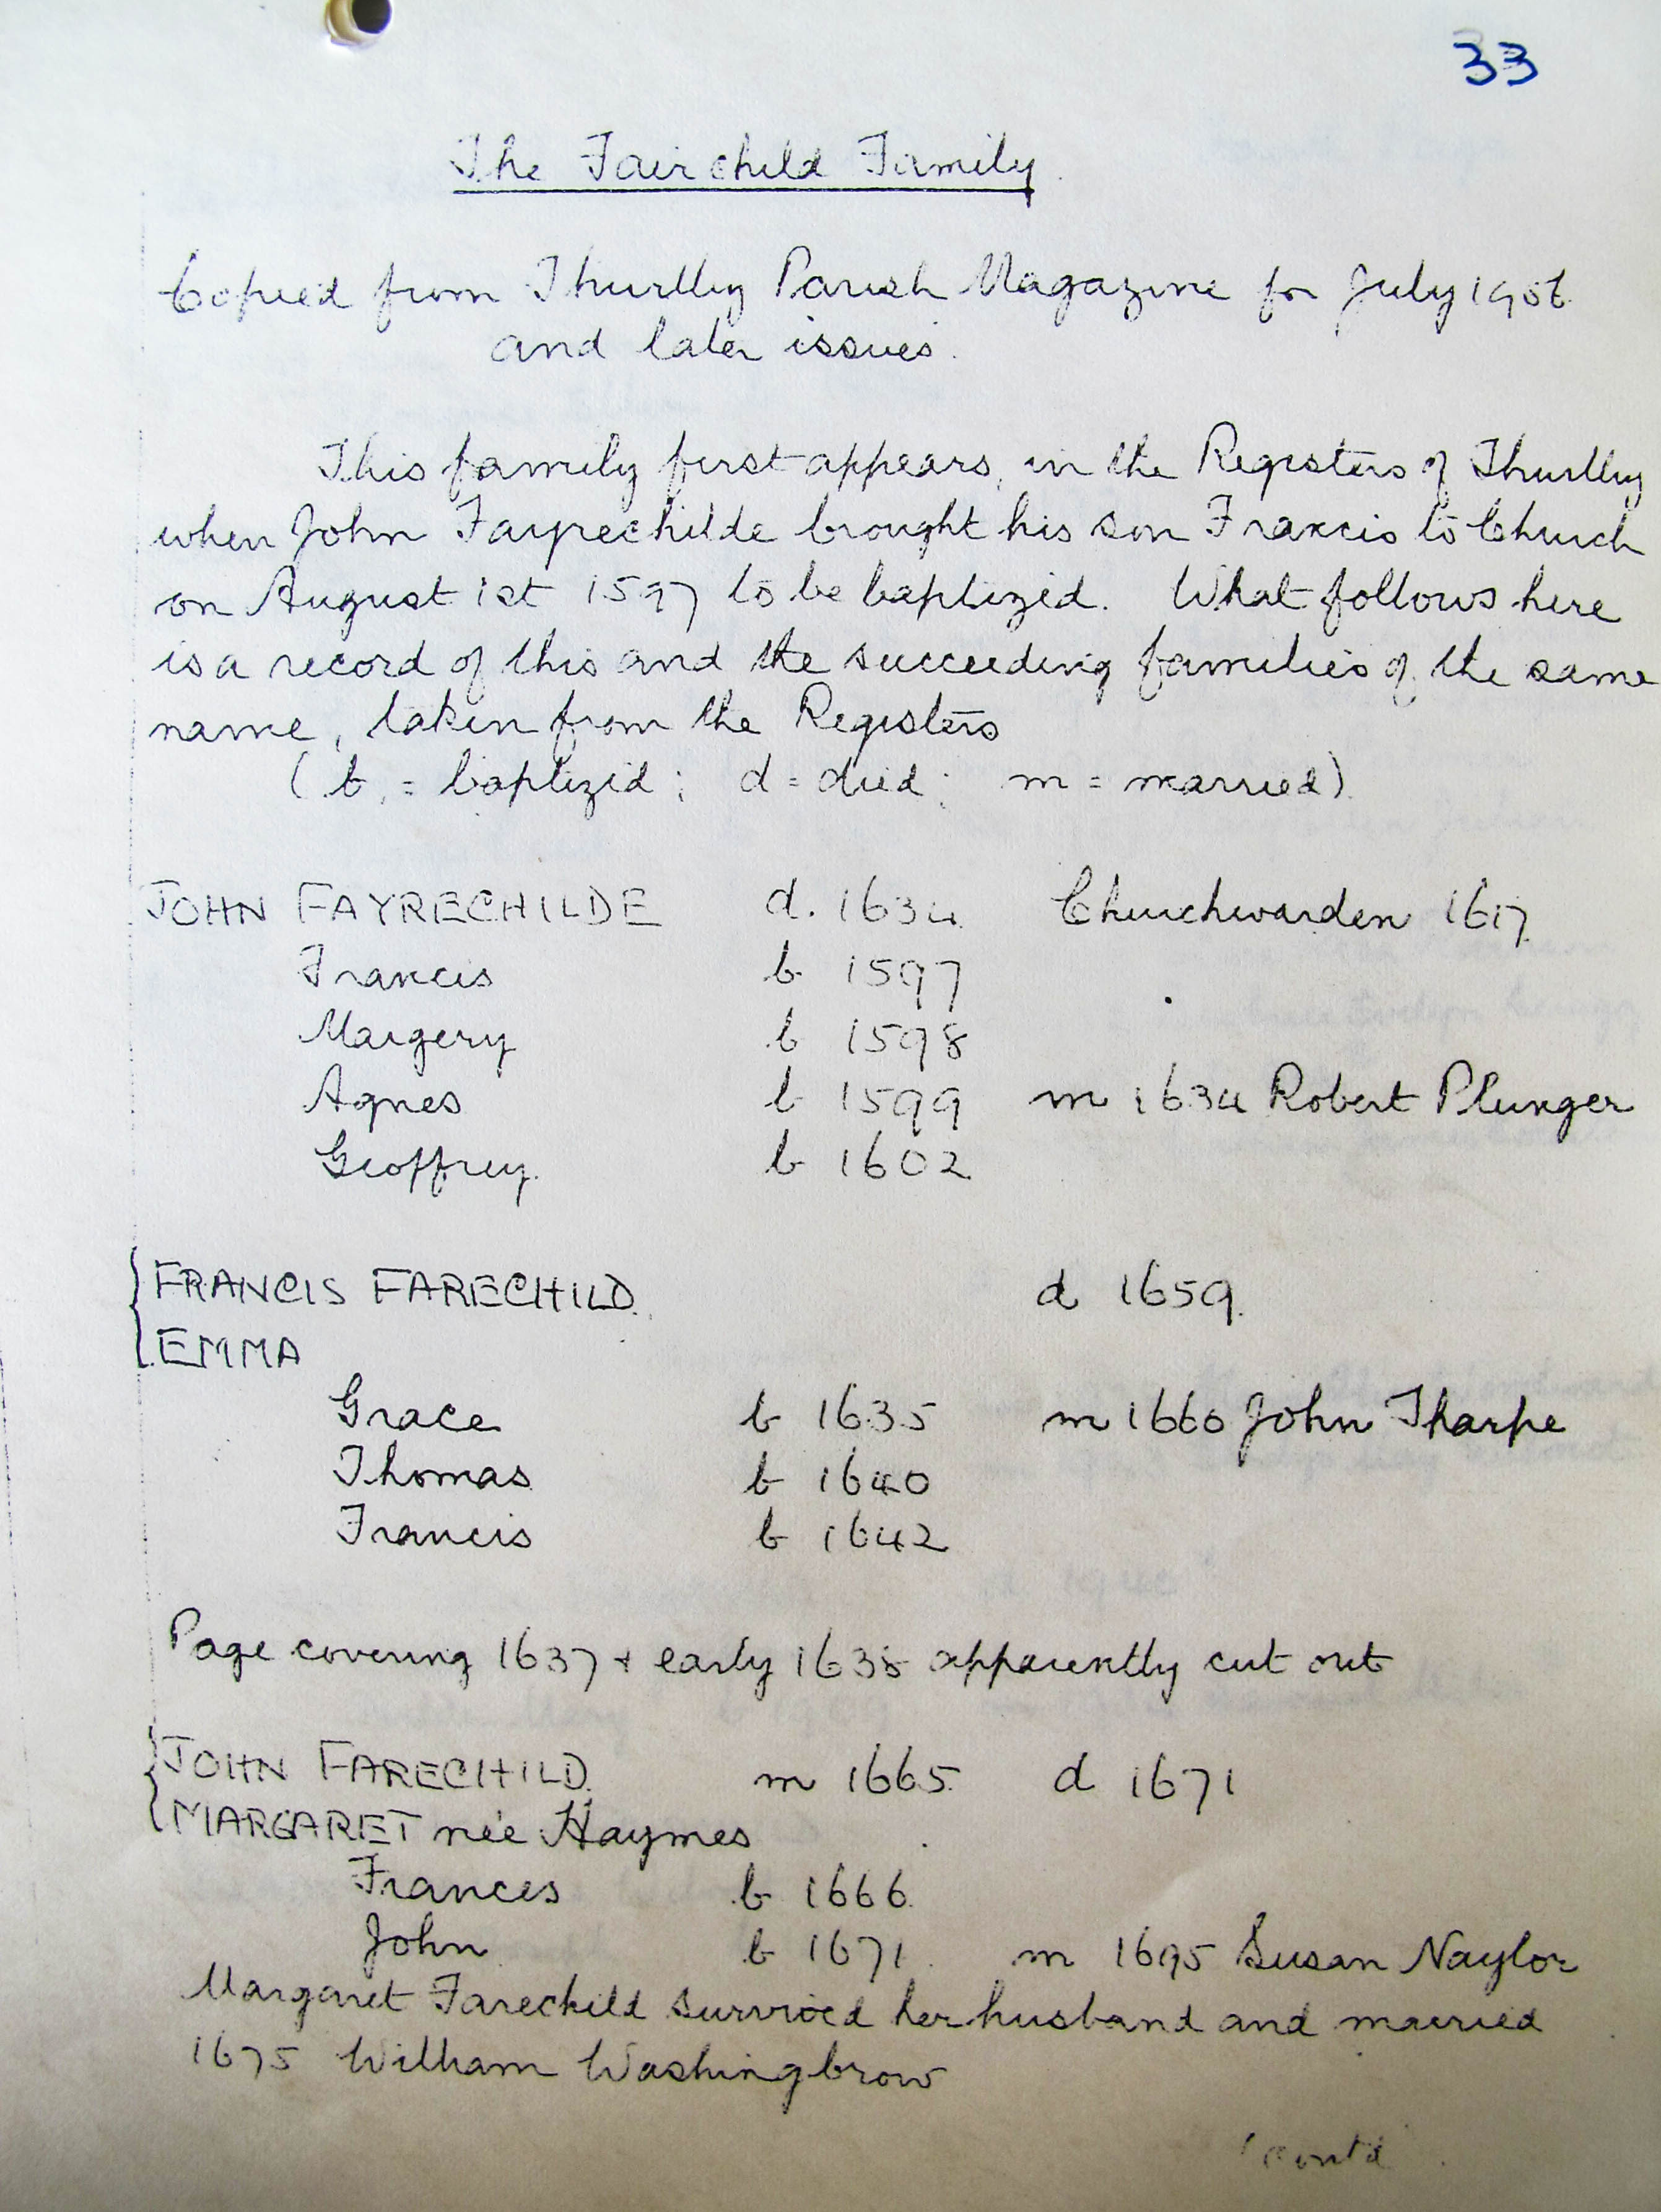 33
The Fairchild Family.
Copied from Thurlby Parish Magazine for July 1956
and later issues.
This family first appears, in the Registers of Thurlby
when John Fayrechilde brought his son Francis to Church
on August 1st 1597 to be baptized. What follows here
is a record of this and the succeeding families of the same
name, taken from the Registers
(b. = baptized; d = died; m = married)
JOHN FAYRECHILDE d. 1634 Churchwarden 1617
Francis b 1597
Margery b 1598
Agnes b 1599 m 1634 Robert Plunger
Geoffrey b 1602
FRANCIS FARECHILD. d 1659.
EMMA
Grace b 1635 m 1660 John Tharpe
Thomas b 1640
Francis b 1642
Page covering 1637 + early 1638 apparently cut out
JOHN FARECHILD. m 1665 d 1671
MARGARET née Haymes
Frances b 1666
John b 1671. m 1695 Susan Naylor
Margaret Farechild survived her husband and married
1675 William Washingbrow
contd